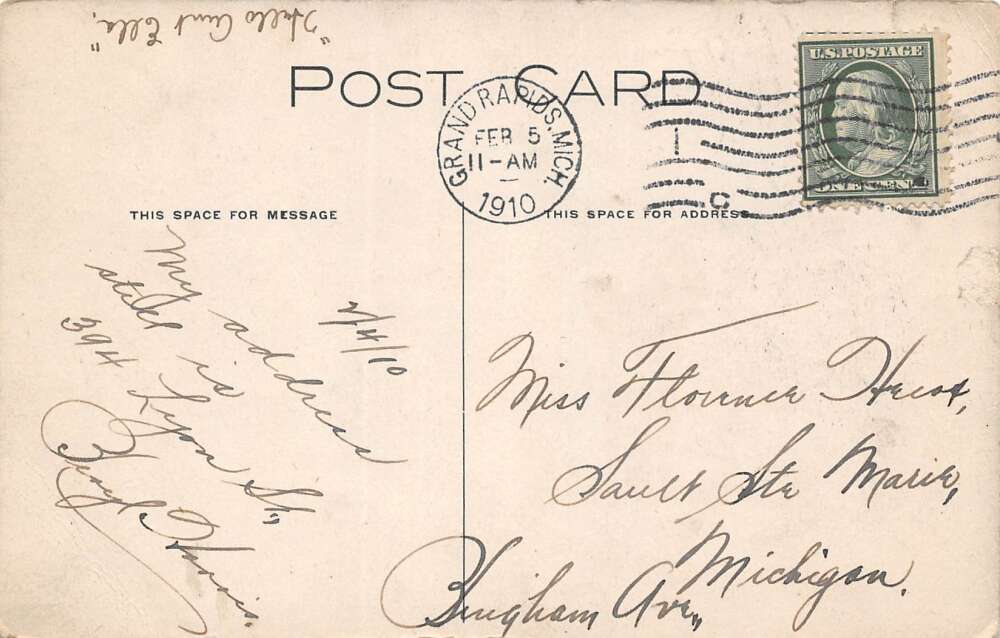 "Hello Aunt Ella."
POST CARD
GRAND RAPIDS, MICH.
FEB 5
11-AM
1910
C
U.S. POSTAGE
ONE CENT
THIS SPACE FOR MESSAGE
THIS SPACE FOR ADDRESS
2/4/10
My address
still is
394 Lyon St,
Beryl Harris.
Miss Florence
Sault Ste Marie,
Michigan.
Bingham Ave,